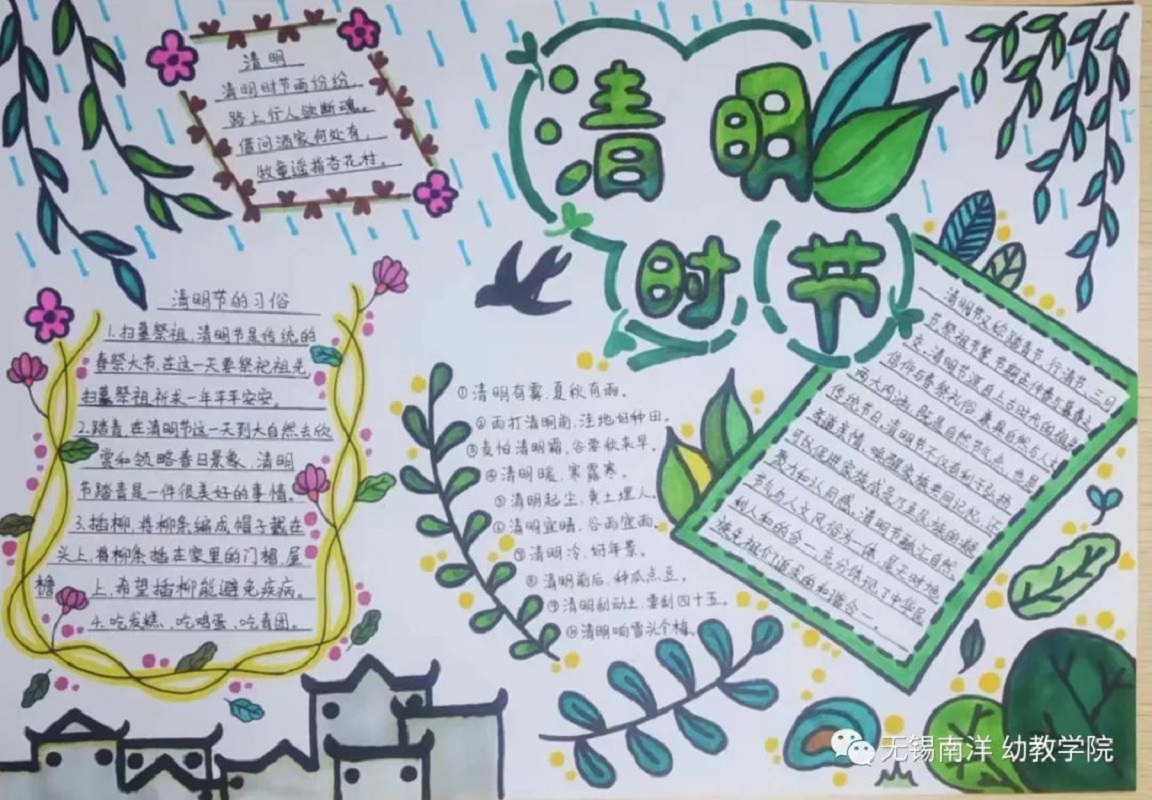 清明时节
清明
清明时节雨纷纷，
路上行人欲断魂。
借问酒家何处有，
牧童遥指杏花村。
清明节的习俗
1.扫墓祭祖，清明节是传统的
春祭大节，在这一天要祭祀祖先，
扫墓祭祖祈求一年平平安安。
2.踏青，在清明节这一天到大自然去欣
赏和领略春日景象，清明
节踏青是一件很美好的事情。
3.插柳，将柳条编成帽子戴在
头上，将柳条插在家里的门楣、屋
檐上，希望插柳能避免疾病。
4.吃发糕、吃鸡蛋、吃青团。
①清明有雾，夏秋有雨。
②雨打清明前，洼地好种田。
③麦怕清明霜，谷要秋来旱。
④清明暖，寒露寒。
⑤清明起尘，黄土埋人。
⑥清明宜晴，谷雨宜雨。
⑦清明冷，好年景。
⑧清明前后，种瓜点豆。
⑨清明刮动土，要刮四十五。
⑩清明响雷头个梅。
清明节又称踏青节、行清节、三月
节、祭祖节等，节期在仲春与暮春之
交。清明节源自上古时代的祖先
信仰与春祭礼俗，兼具自然与人文
两大内涵，既是自然节气点，也是
传统节日，清明节不仅有利于弘扬
孝道亲情、唤醒家族共同记忆，还
可以促进家族成员乃至民族的凝
聚力和认同感。清明节融汇自然
节气与人文风俗为一体，是天时地
利人和的合一，充分体现了中华民
族先祖们追求的和谐合一。
无锡南洋 幼教学院